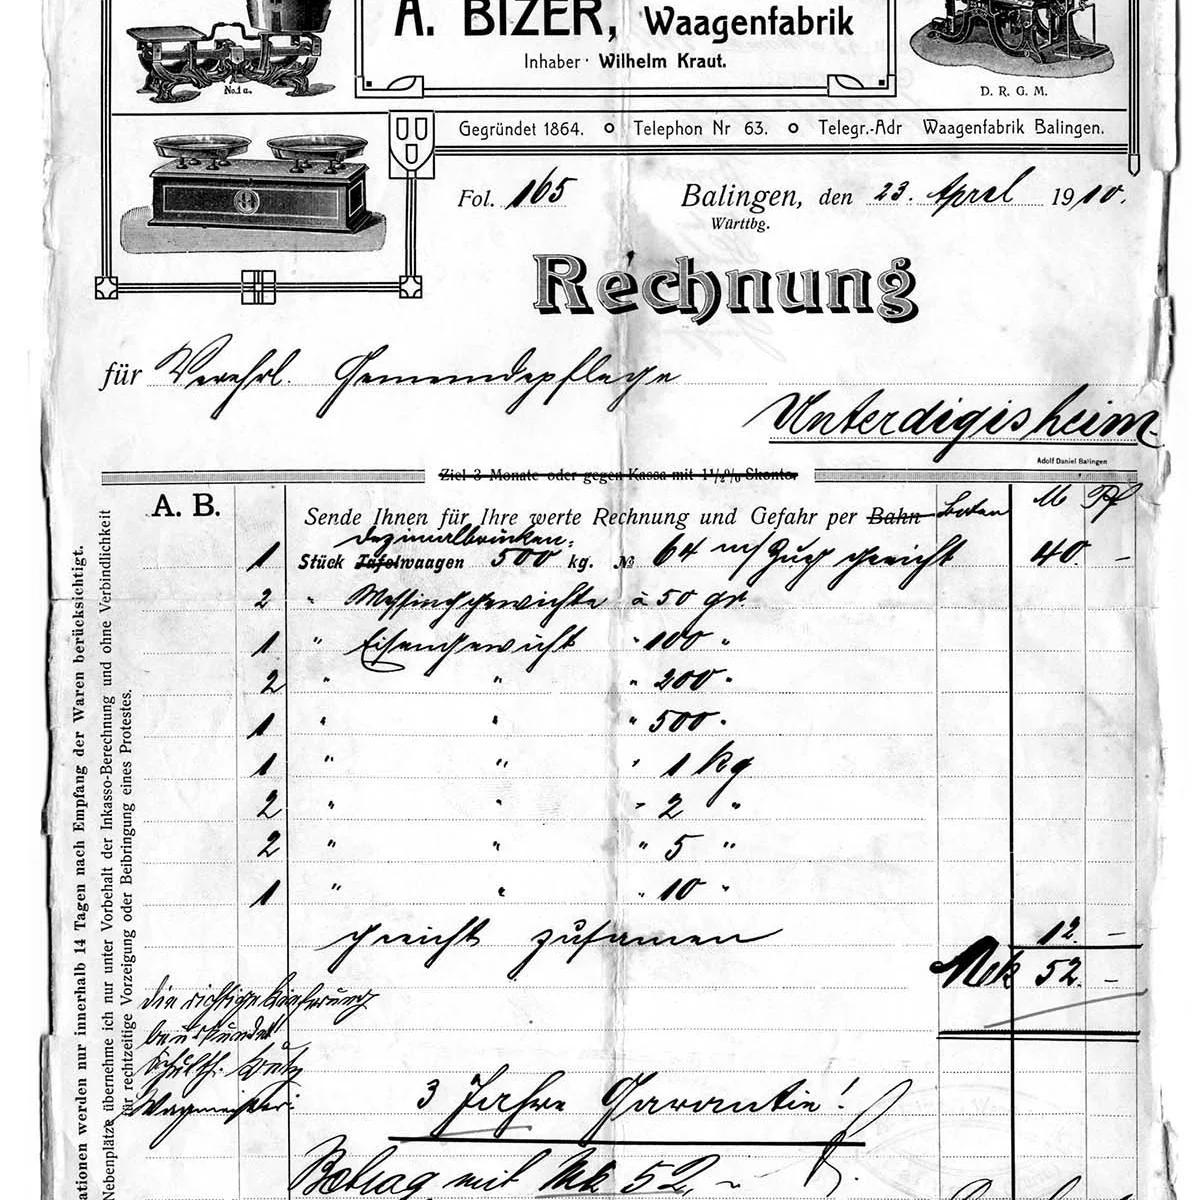 A. BIZER, Waagenfabrik
Inhaber · Wilhelm Kraut.
No. 1a.
D. R. G. M.
Gegründet 1864. o Telephon Nr 63. o Telegr.-Adr Waagenfabrik Balingen.
Fol. 165 Balingen, den 23. April 1910.
Württbg.
Rechnung
für Verehrl. Gemeindepflege
Unterdigisheim
Adolf Daniel Balingen
Ziel 3 Monate oder gegen Kassa mit 1½% Skonto.
A. B. M Pf
Sende Ihnen für Ihre werte Rechnung und Gefahr per Bahn Boten
Dezimalbrücken:
1 Stück Tafelwaagen 500 kg. № 64 m/Zug geeicht 40. –
2 " Messinggewichte à 50 gr.
1 " Eisengewicht " 100 "
2 " " " 200 "
1 " " " 500 "
1 " " " 1 kg
2 " " " 2 "
2 " " " 5 "
1 " " " 10 "
geeicht zusamen 12. –
Mk 52. –
die richtige Lieferung
beurkundet
Schulth.
Wagmeister:
3 Jahre Garantie!
Betrag mit Mk 52, –
ationen werden nur innerhalb 14 Tagen nach Empfang der Waren berücksichtigt.
Nebenplätze übernehme ich nur unter Vorbehalt der Inkasso-Berechnung und ohne Verbindlichkeit
für rechtzeitige Vorzeigung oder Beibringung eines Protestes.